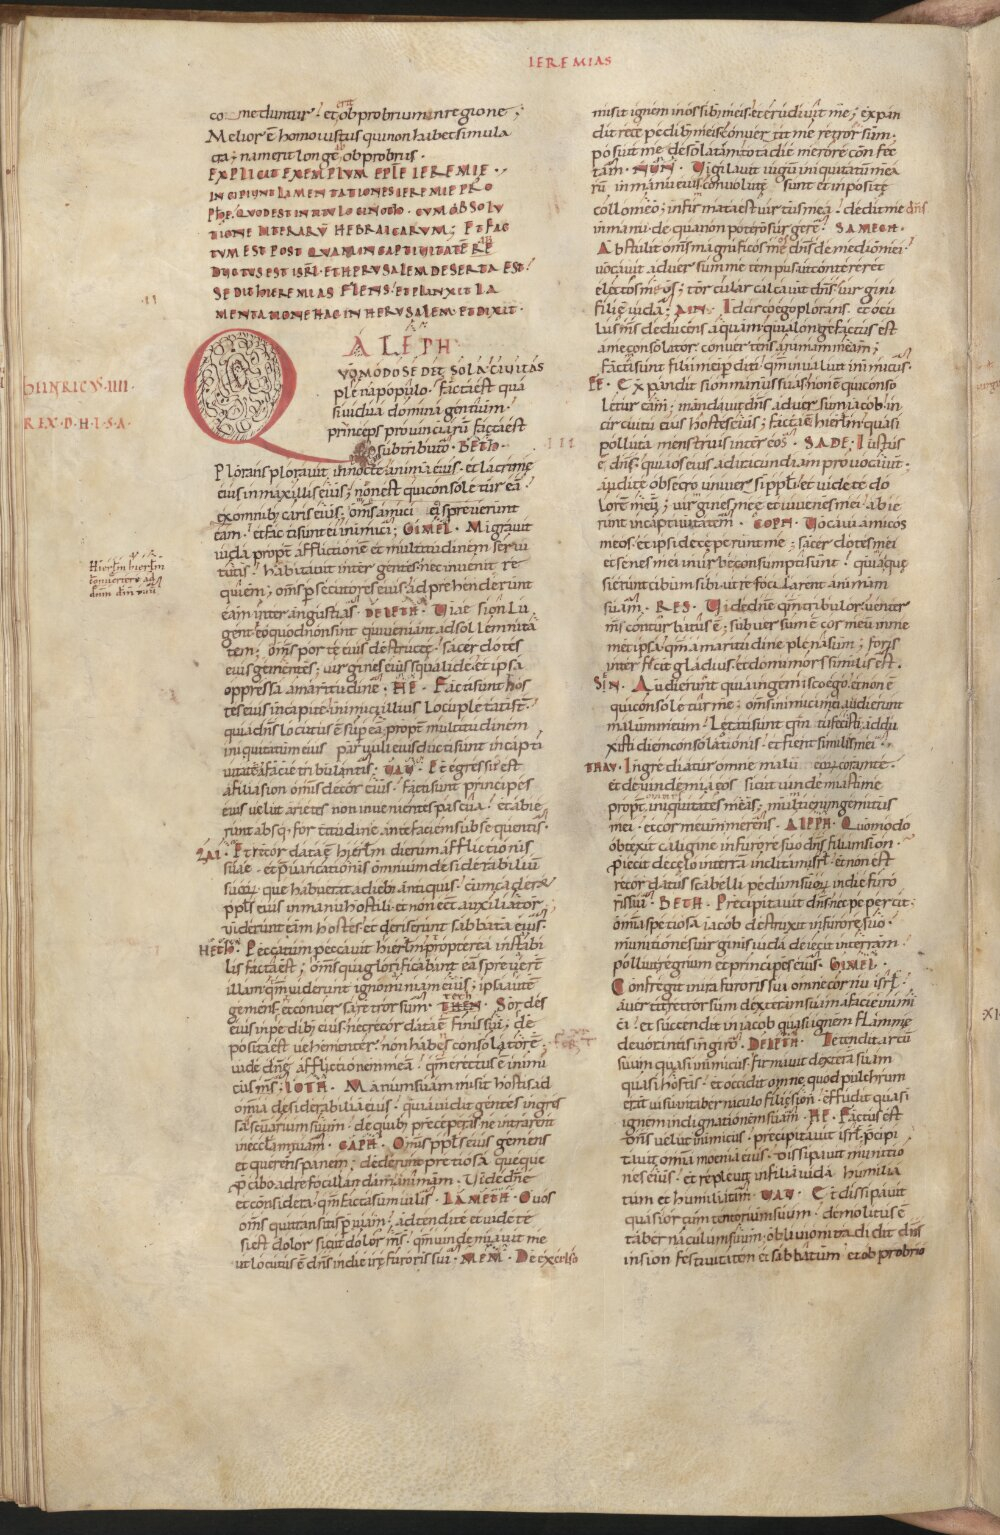 IEREMIAS
comeduntur. et obprobrium in regione;
Melior ē homo iustus qui non habet simula
cra; nam erit longe ab obprobriis.
EXPLICIT EXEMPLUM EPLE IEREMIE.
INCIPIUNT LAMENTATIONES IEREMIE PRO
PHE. QUOD EST IN TITULO CINOTH. CUM ABSOLU
TIONE LITERARŪ HEBRAICARUM; ET FAC
TUM EST POST QUAM IN CAPTIVITATĒ RE
DUCTUS EST ISRL. ET HERUSALEM DESERTA EST.
SEDIT HIEREMIAS FLENS. ET PLANXIT LA
MENTATIONE HAC IN HERUSALEM. ET DIXIT.
ALEPH
QUOMODO SEDET SOLA CIVITAS
plena populo. facta est qua
si uidua domina gentium.
princeps prouinciarū facta est
sub tributo. BETH.
HEINRICUS IIII
REX D H I S A
Plorans plorauit in nocte. et lacrimę
eius in maxillis eius; non est qui consoletur eā
ex omnib; caris eius. oms amici ei spreuerunt
eam. et facti sunt ei inimici; GIMEL. Migrauit
iuda propt afflictionē et multitudinem serui
tutis. habitauit inter gentes. nec inuenit re
quiem; oms psecutores eius adprehenderunt
Hierlm hierlm
conuertere ad
dnm dm tuū
eam inter angustias. DELETH. Uiae sion lu
gent eo quod non sint qui ueniant ad sollemnitā
tem; oms portę eius destructę. sacerdotes
eius gementes; uirgines eius squalidę. et ipsa
oppressa amaritudine. HE. Facti sunt hos
tes eius in capite. inimici illius locupletati st.
quia dns locutus ē sup eā propt multitudinem
iniquitatum eius paruuli eius ducti sunt in capti
uitatē a facie tribulantis; UAU. Et egressus est
a filia sion omis decor eius. facti sunt principes
eius uelut arietes non inuenientes pascua. et abie
runt absq. fortitudine ante faciem subsequentis.
ZAI. Et recordata ę hierlm dierum afflictionis
suae. et puaricationis omnium desiderabiliū
suorum que habuerat a dieb; antiquis. cum caderet
ppls eius in manu hostili. et non eēt auxiliator;
uiderunt eam hostes. et deriserunt sabbata eius.
HETH. Peccatum peccauit hierlm propterea instabi
lis facta est; oms qui glorificabant eā spreuerē
illam. qm uiderunt ignominiam eius; ipsa autē
gemens. et conuersa retrorsum. TETH. Sordes
eius in pedib; eius. nec recordata ē finis sui; de
posita est uehementer. non habens consolatorē.
uide dne afflictionem meā. qm erectus ē inimi
cus ms; IOTH. Manum suam misit hostis ad
omia desiderabilia eius. quia uidit gentes ingres
sa scuarium suum. de quib; preceperas ne intrarent
in ecclam tuam. CAPH. Oms ppls eius gemens
et querens panem; dederunt pretiosa queque
p cibo ad refocillandam animam. Uide dne
et considera. qm facta sum uilis. LAMETH. O uos
oms qui transitis p uiam. adtendite et uidete
si est dolor sicut dolor ms. qm uindemiauit me
ut locutus ē dns in die irę furoris sui. MEM. De excelso
misit ignem in ossib; meis. et erudiuit me; expan
dit rete pedib; meis. conuertit me retrorsum.
posuit me desolatam tota die merore confec
tam. NUN. Uigilauit iugū iniquitatum mea
rū in manu eius. conuolutę sunt et inpositę
collo meo; infirmata est uirtus mea. dedit me dns
in manu. de qua non potero surgere. SAMECH.
Abstulit oms magnificos meos dns de medio mei.
uocauit aduersum me tempus. ut contereret
electos meos; torcular calcauit dns uirgini
filię iuda; AIN. Idcirco ego plorans. et ocu
lus ms deducens aquam. quia longe factus est
a me consolator. conuertens animam meam;
facti sunt filii mei pditi. qm inualuit inimicus.
FE. Expandit sion manus suas. non ē qui conso
letur eam; mandauit dns aduersum iacob. in
circuitu eius hostes eius; facta ē hierlm quasi
polluta menstruis inter eos. SADE; Iustus
ē dns. quia os eius ad iracundiam prouocaui.
audite obsecro uniuersi ppli. et uidete do
lorē meū; uirgines meę et iuuenes mei abie
runt in captiuitatem. COPH. Uocaui amicos
meos. et ipsi deceperunt me; sacerdotes mei
et senes mei in urbe consumpti sunt. quia quę
sierunt cibum sibi. ut refocilarent animam
suam. RES. Uide dne qm tribulor. uenter
ms conturbatus ē; subuersum ē cor meū in me
met ipsa. qm amaritudine plena sum; foris
interficit gladius. et domi mors similis est.
SIN. Audierunt quia ingemisco ego. et non ē
qui consoletur me; oms inimici mei audierunt
malum meum. letati sunt qm tu fecisti; addu
xisti diem consolationis. et fient similes mei.
THAU. Ingrediatur omne malū eorum coram te.
et deuindemia eos sicut uindemiasti me
propt omnes iniquitates meas; multi enim gemitus
mei. et cor meum merens. ALEPH. Quomodo
obtexit caligine in furore suo dns filiam sion.
proiecit de cęlo in terra inclitam isrl. et non est
recordatus scabelli pedum suorum in die furo
ris sui. BETH. Precipitauit dns. nec pepercit.
omia speciosa iacob destruxit in furore suo.
munitiones uirginis iuda deiecit in terram.
polluit regnum et principes eius. GIMEL.
Confregit in ira furoris sui omne cornu isrl.
auertit retrorsum dexteram suam a facie inimi
ci. et succendit in iacob quasi ignem flammę
deuorantis in giro. DELETH. Tetendit arcū
suum quasi inimicus. firmauit dexterā suam
quasi hostis. et occidit omne quod pulchrum
erat uisu in tabernaculo filię sion. effudit quasi
ignem indignationem suam. HE. Factus est
dns uelut inimicus. precipitauit isrl. pcipi
tauit omia moenia eius. dissipauit munitio
nes eius. et repleuit in filia iuda humilia
tum et humiliatam. UAU. Et dissipauit
quasi ortum tentorium suum. demolitus ē
tabernaculum suum. obliuioni tradidit dns
in sion festiuitatem et sabbatum. et obprobrio